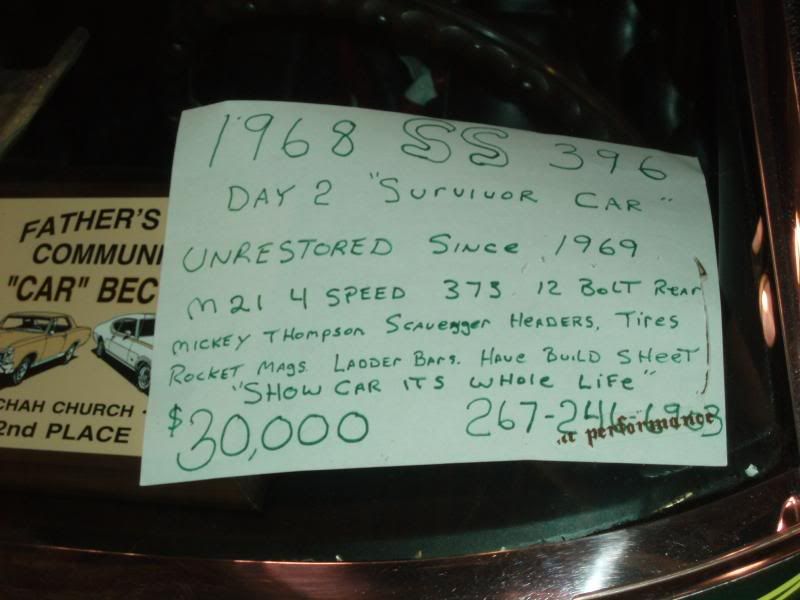 1968 SS 396
DAY 2 "SURVIVOR CAR"
UNRESTORED SINCE 1969
M21 4 SPEED 373 12 BOLT REAR
MICKEY THOMPSON SCAVEGGER HEADERS, TIRES
ROCKET MAGS. LADDER BARS. HAVE BUILD SHEET
"SHOW CAR ITS WHOLE LIFE"
$30,000 267-246-6903
performance
FATHER'S
COMMUNI
"CAR" BEC
CHAH CHURCH
2nd PLACE